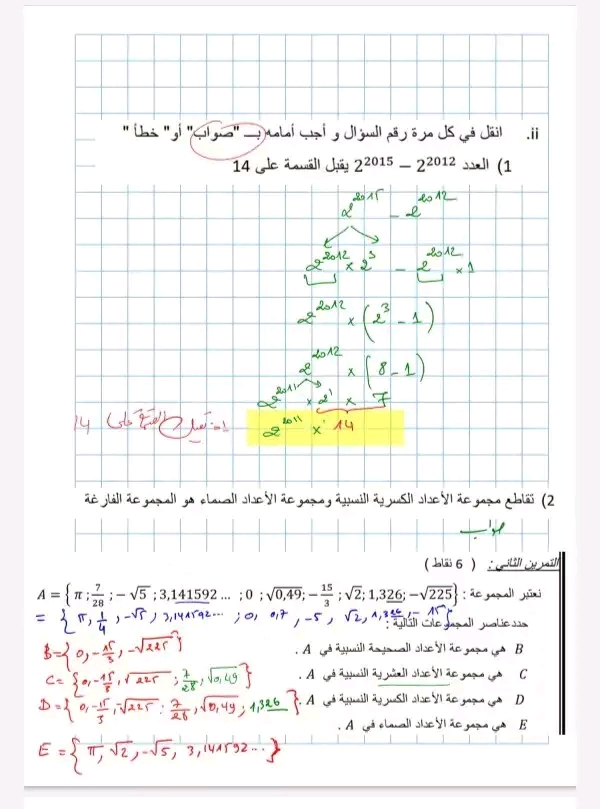 ii. انقل في كل مرة رقم السؤال و أجب أمامه بـ "صواب" أو" خطأ "
1) العدد 2²⁰¹⁵ − 2²⁰¹² يقبل القسمة على 14
2²⁰¹⁵ − 2²⁰¹²
2²⁰¹² × 2³ − 2²⁰¹² × 1
2²⁰¹² × (2³ − 1)
2²⁰¹² × (8 − 1)
2²⁰¹¹ × 2¹ × 7
2²⁰¹¹ × 14 يقبل القسمة على 14
2) تقاطع مجموعة الأعداد الكسرية النسبية ومجموعة الأعداد الصماء هو المجموعة الفارغة
صواب
التمرين الثاني : ( 6 نقاط )
نعتبر المجموعة : A = {π ; 7/28 ; −√5 ; 3,141592 ... ; 0 ; √0,49; −15/3 ; √2; 1,326; −√225}
= {π, 1/4, −√5, 3,141592... ; 0, 0,7, −5, √2, 1,326, −15}
حدد عناصر المجموعات التالية :
B هي مجموعة الأعداد الصحيحة النسبية في A .
B = {0, −15/3, −√225}
C هي مجموعة الأعداد العشرية النسبية في A .
C = {0, −15/3, √225 ; 7/28, √0,49}
D هي مجموعة الأعداد الكسرية النسبية في A .
D = {0, −15/3, −√225 ; 7/28, √0,49, 1,326}
E هي مجموعة الأعداد الصماء في A .
E = {π, √2, −√5, 3,141592...}